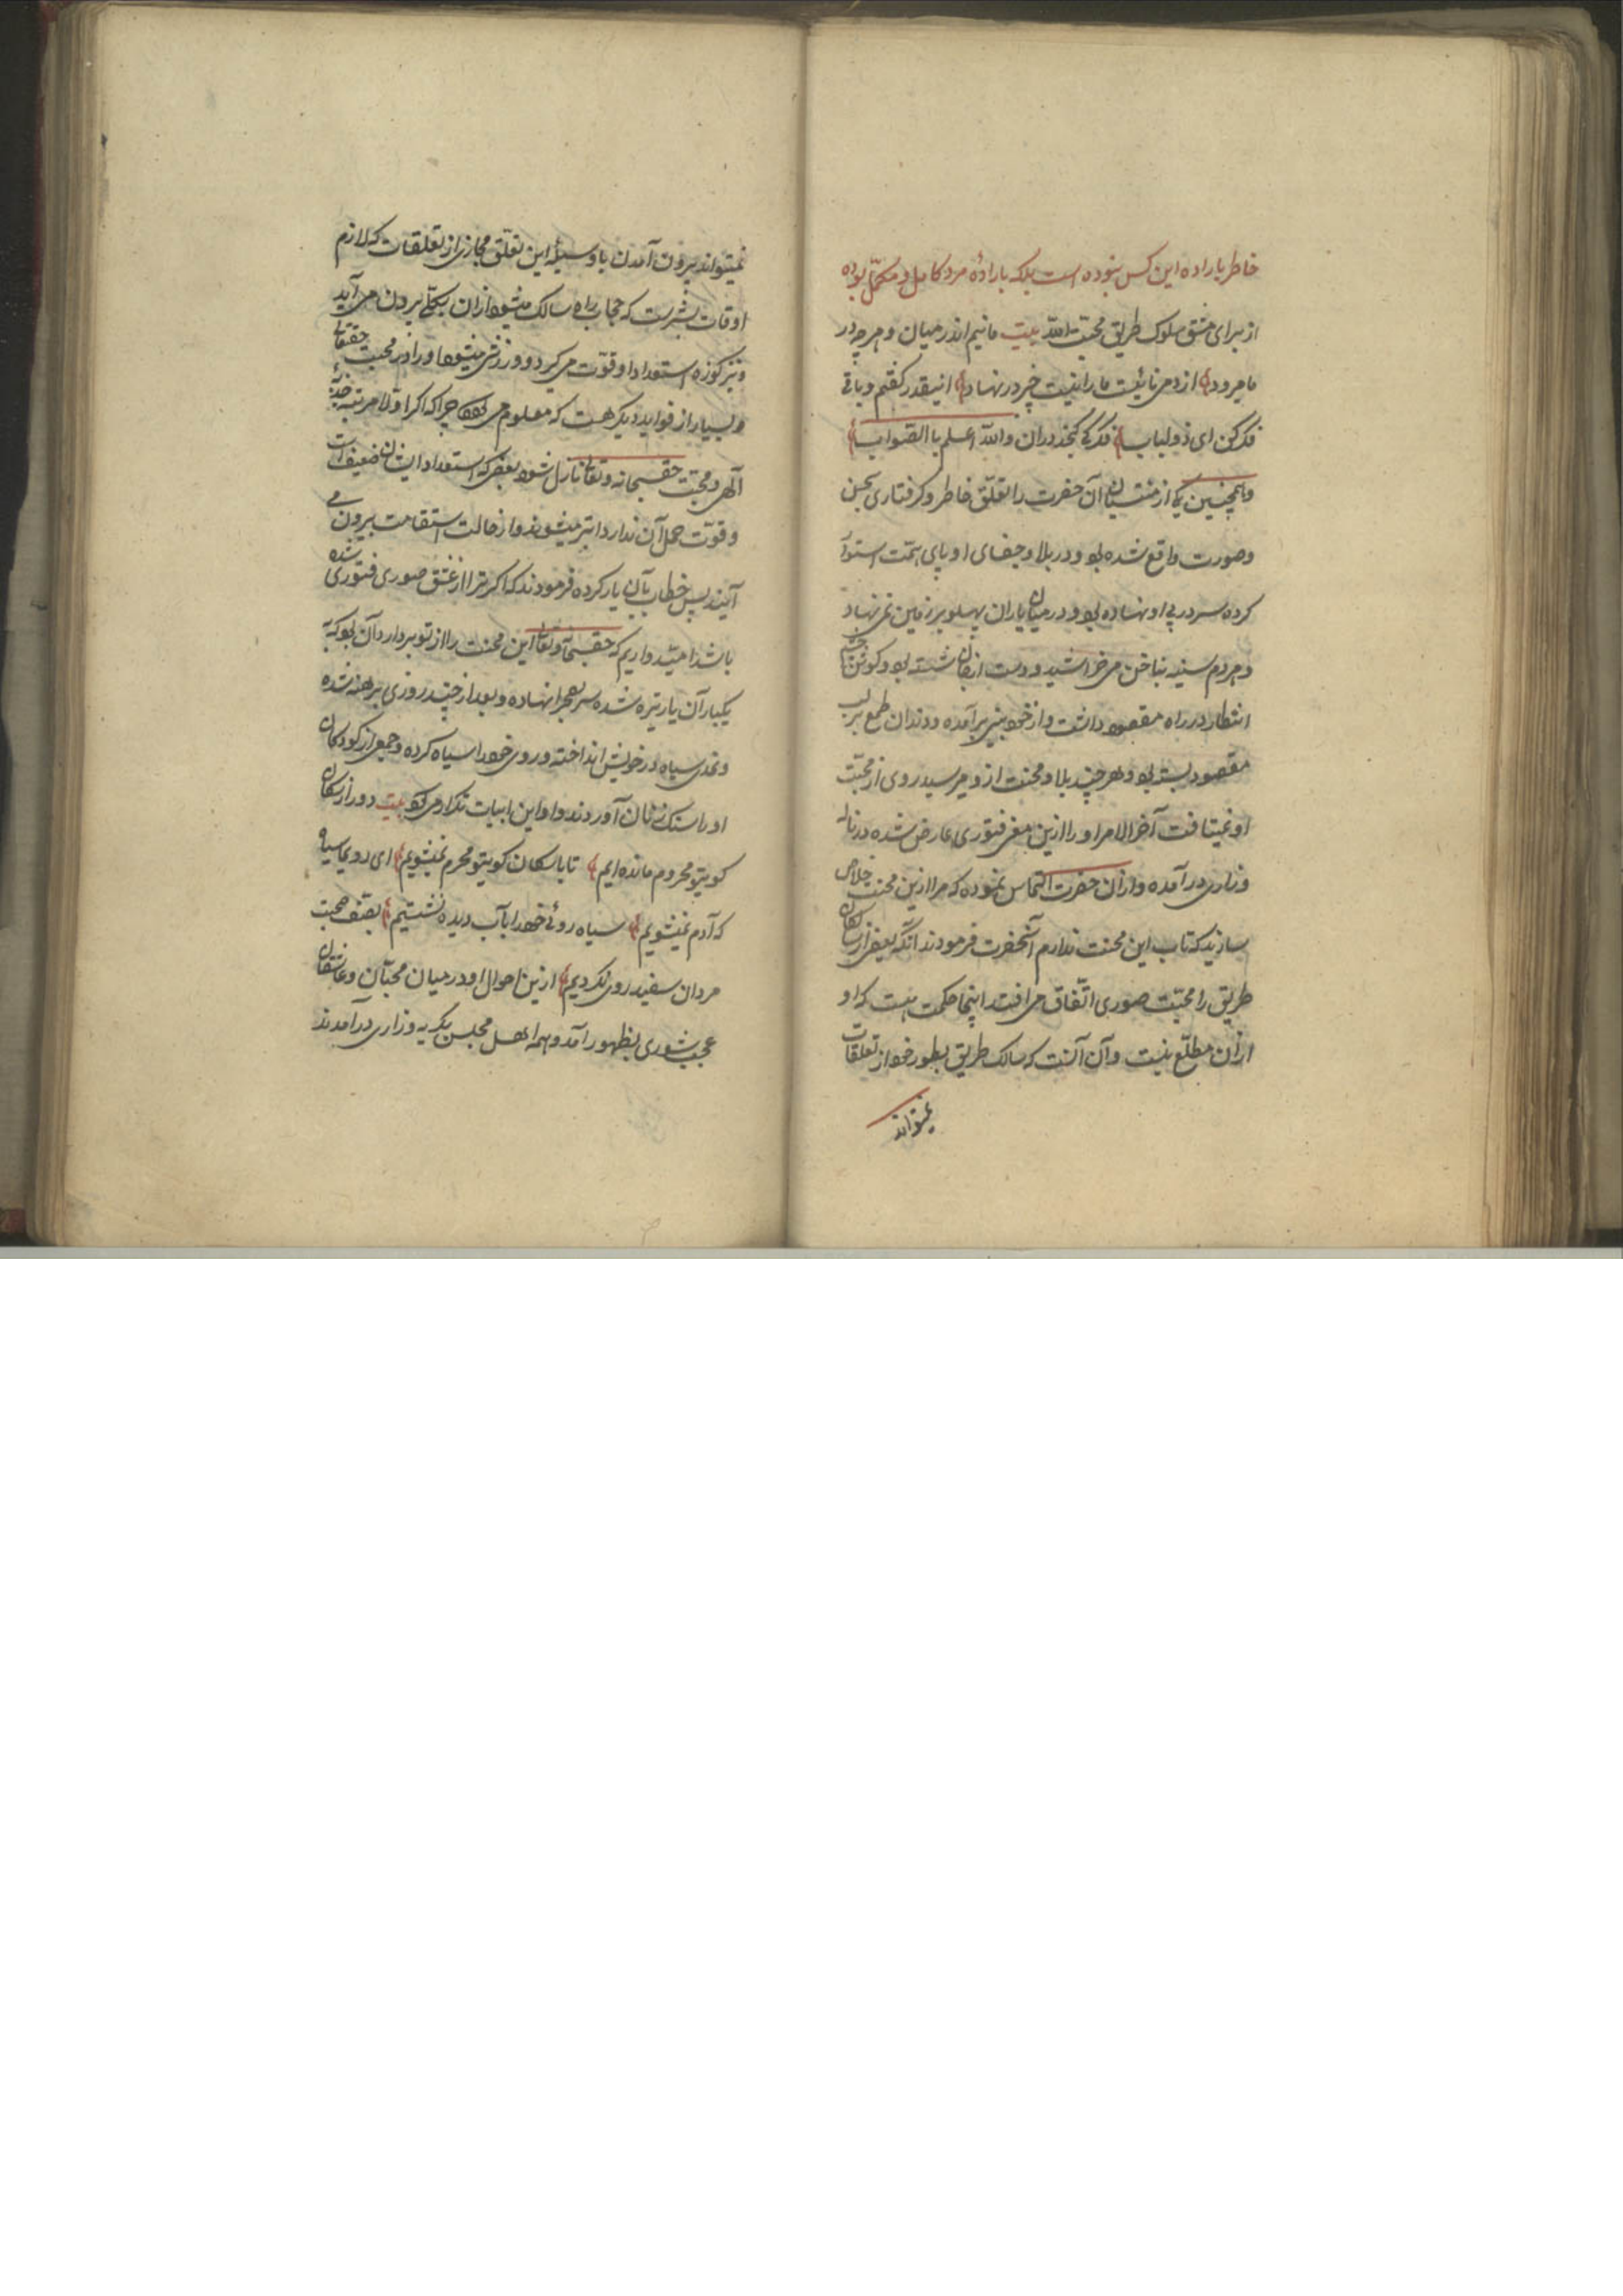 خاطر باراده این کس نبوده است بلکه بارادهٔ مرد کامل و مکمّل بوده
از برای مشق سلوک طریق محبّت الله بیت مانیم اندر میان و هرچه در
ما مرود از دمی نائست ما را نیست چیز در نهاد اینقدر گفتم و باقی
فکر کن ای ذولباب فکر کی گنجد دران والله اعلم باالصّواب
و همچنین یکی از منتسبان آن حضرت را تعلّق خاطر و کرفتاری بحسن
و صورت واقع شده بود و در بلا و جفای او پای همّت استوار
کرده سر در پی او نهاده بود و در میان یاران پهلو بر زمین نمی نهاد
و هر دم سینه بناخن می خراشید و دست از جان شسته بود و کوش
انتظار در راه مقصود داشت و از خود بینی برآمده و دندان طمع بر لب
مقصود بسته بود و هر چند بلا و محنت ازو میرسید روی از محبّت
او نمیتافت آخر الامر او را ازین معنی فتوری عارض شده در ناله
و زاری در آمده و ازان حضرت التماس نموده که مرا ازین محنت خلاص
سازید که تاب این محنت ندارم آنحضرت فرمودند آنکه بعضی از سالکان
طریق را محبّت صوری اتّفاق می افتد اینجا حکمت هست که او
ازان مطلّع نیست و آن آنست که سالک طریق بطور خود از تعلقات
نمیتواند
نمیتواند بیرون آمدن باوسیلهٔ این تعلّق مجازی از تعلقات که لازم
اوقات بشریت که حجاب راه سالک میشود ازان بکلّی بیرون می آید
و نیز کوزه استعداد او قوّت می گیرد و ورزش میشود او را در محبت حقتعالی
و بسیار از فواید دیگر هست که معلوم می شود چرا که اگر اوّلا مرتبه جذبهٔ
الهی و محبّت حق سبحانه و تعالی نازل شود بعضی که استعداد ایشان ضعیف است
و قوّت حمل آن ندارد ابتر میشوند و از حالت استقامت بیرون می
آیند پس خطاب بآن یار کرده فرمودند که اگر ترا از عشق صوری فتوری شده
باشد امیدواریم که حق سبحانه و تعالی این محنت را از تو بردارد آن بود که به
یکبار آن یار تیره شده سر بصحرا نهاده و بعد از چند روزی برهنه شده
و نمدی سیاه در خویش انداخته و روی خود را سیاه کرده و جمعی از کودکان
او را سنک زنان آوردند و او این ابیات تکرار می کرد بیت دور از سگان
کویتو محروم مانده ایم تا با سگان کویتو محرم نمیشویم ای رو سیاه
که آدم نمیشویم سیاه روئی خود را بآب دیده نشستیم بصف صحبت
مردان سفید روی نکردیم ازین احوال او در میان محبّان و عاشقان
عجب شوری بظهور آمد و همه اهل مجلس بگریه و زاری درآمدند